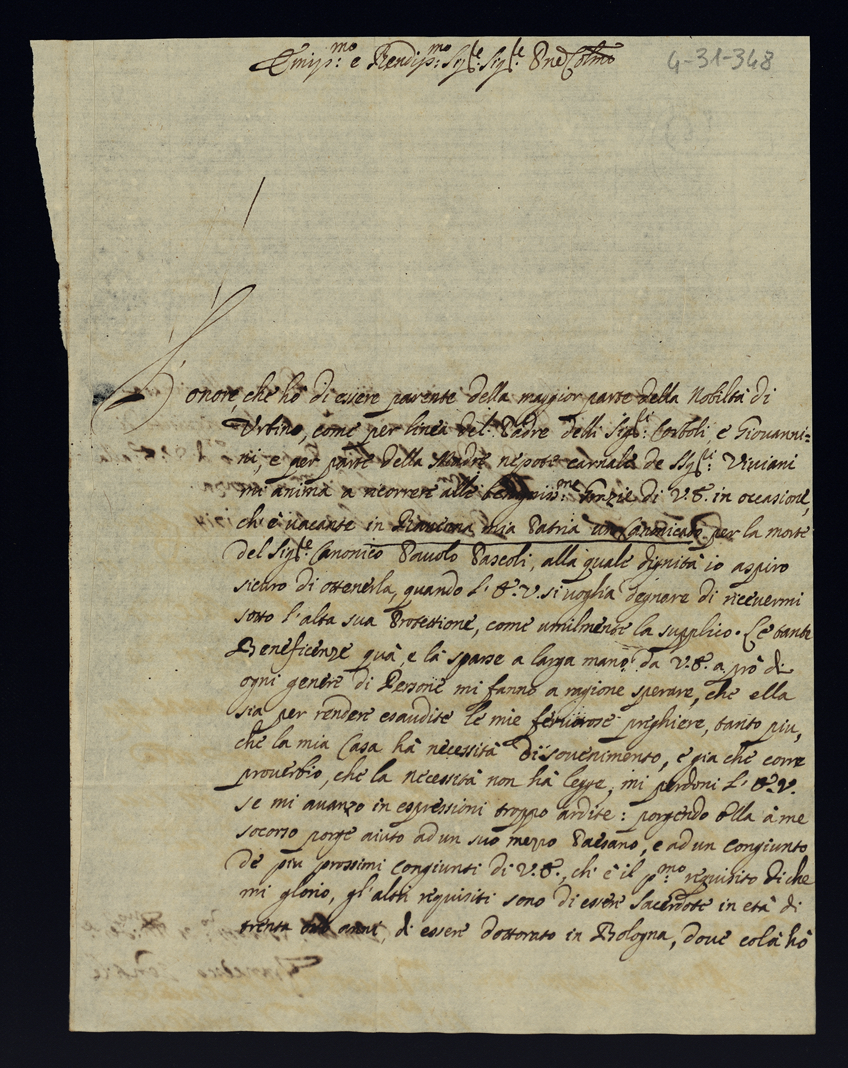 Emin:mo e Rendis:mo Sig:re Sig:re Pne Colmo
4-31-348
L'onore, che hò di essere parente della maggior parte della Nobiltà di
Urbino, come per linea del Padre delli Sig:ri Corboli, e Giovanni=
ni, e per parte della Madre nepote carnale de SSig:ri Viviani
mi anima a ricorrere alle benigniss:me Grazie di V.E. in occasione,
ch'è vacante in Ravenna mia Patria un Canonicato per la morte
del Sig:re Canonico Pavolo Pascoli, alla quale dignità io aspiro
sicuro di ottenerla, quando l'E.V. si voglia degnare di ricevermi
sotto l'alta sua Protettione, come umilmente la supplico. Le tante
Beneficenze quà, e là sparse a larga mano da V.E. a prò di
ogni genere di Persone mi fanno a ragione sperare, che ella
sia per rendere esaudite le mie fervorose preghiere, tanto piu,
che la mia Casa hà necessità di sovenimento, e già che corre
proverbio, che la necessità non hà legge, mi perdoni l'E.V.
se mi avanzo in espressioni troppo ardite: porgendo Ella à me
socorso porge aiuto ad un suo mezzo Paesano, e ad un congiunto
de piu prossimi congiunti di V.E., ch'è il p:mo requisito di che
mi glorio, gl'altri requisiti sono di essere Sacerdote in età di
trenta anni, di essere dottorato in Bologna, dove colà hò